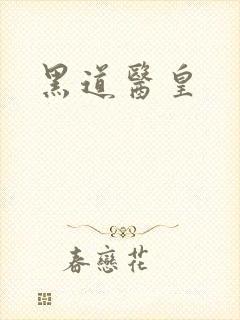 黑道醫皇
春戀花